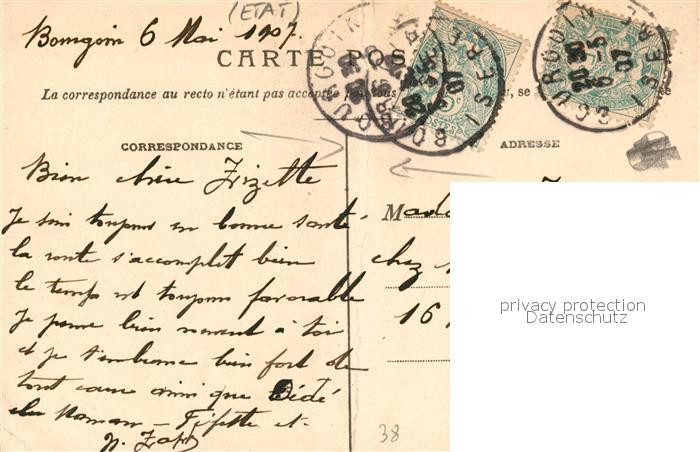 (ETAT)
Bourgoin 6 Mai 1907.
CARTE POS
La correspondance au recto n'étant pas acceptée tous , se
BOURGOIN ISERE
20 30 6 -5 07
BOURGOIN ISERE
20 30 6 -5 07
CORRESPONDANCE
ADRESSE
Bien chère Zizette
Je suis toujours en bonne santé
la route s'accomplit bien
le temps est toujours favorable
Je pense bien souvent à toi
et je t'embrasse bien fort de
tout cœur ainsi que Dédé
Maman - Fifette et
Mada
chez
16
38
privacy protection
Datenschutz